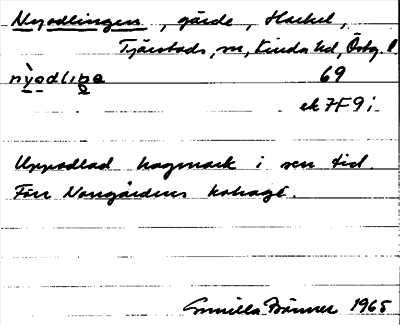 Nyodlingen, gärde, Hackel,
Tjärstads, sn, Kinda hd, Östg. l.
nỳodlịṇe 69
ek 7F9i
Uppodlad hagmark i sen tid.
Förr Norrgårdens kohage.
Gunilla Bonner 1965